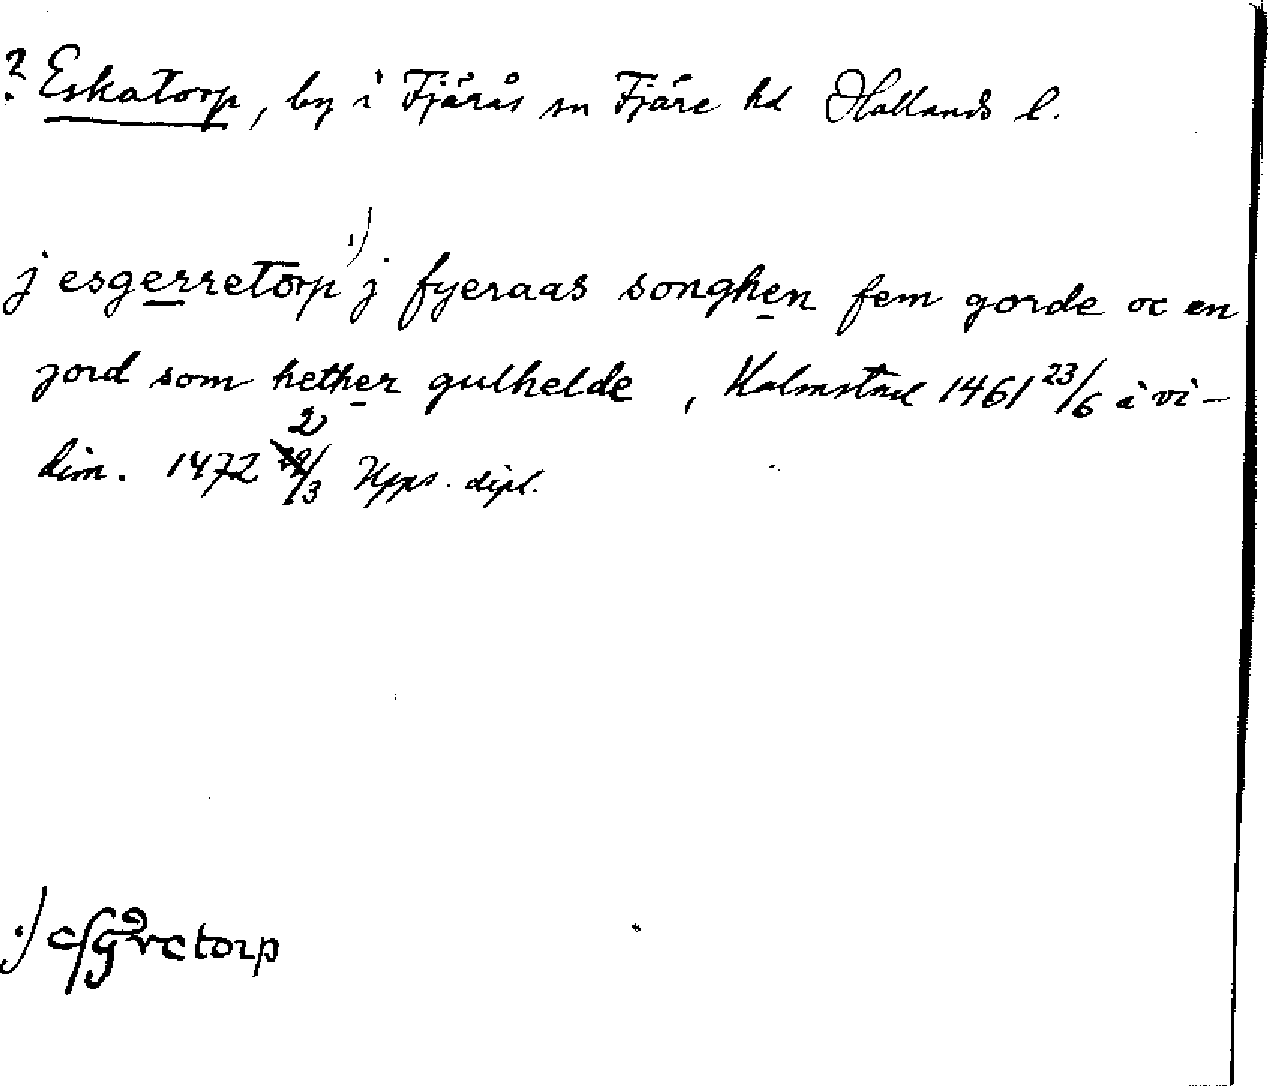 ? Eskatorp, by i Fjärås sn Fjäre hd Hallands l.
j esgerretorp 1) j fyeraas songhen fem gorde oc en
jord som hether gulhelde, Halmstad 1461 23/6 i vi-
dim. 1472 2/3 Upps. dipl.
1) esg retorp